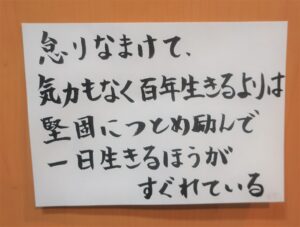 怠りなまけて、
気力もなく百年生きるよりは
堅固につとめ励んで
一日生きるほうが
すぐれている